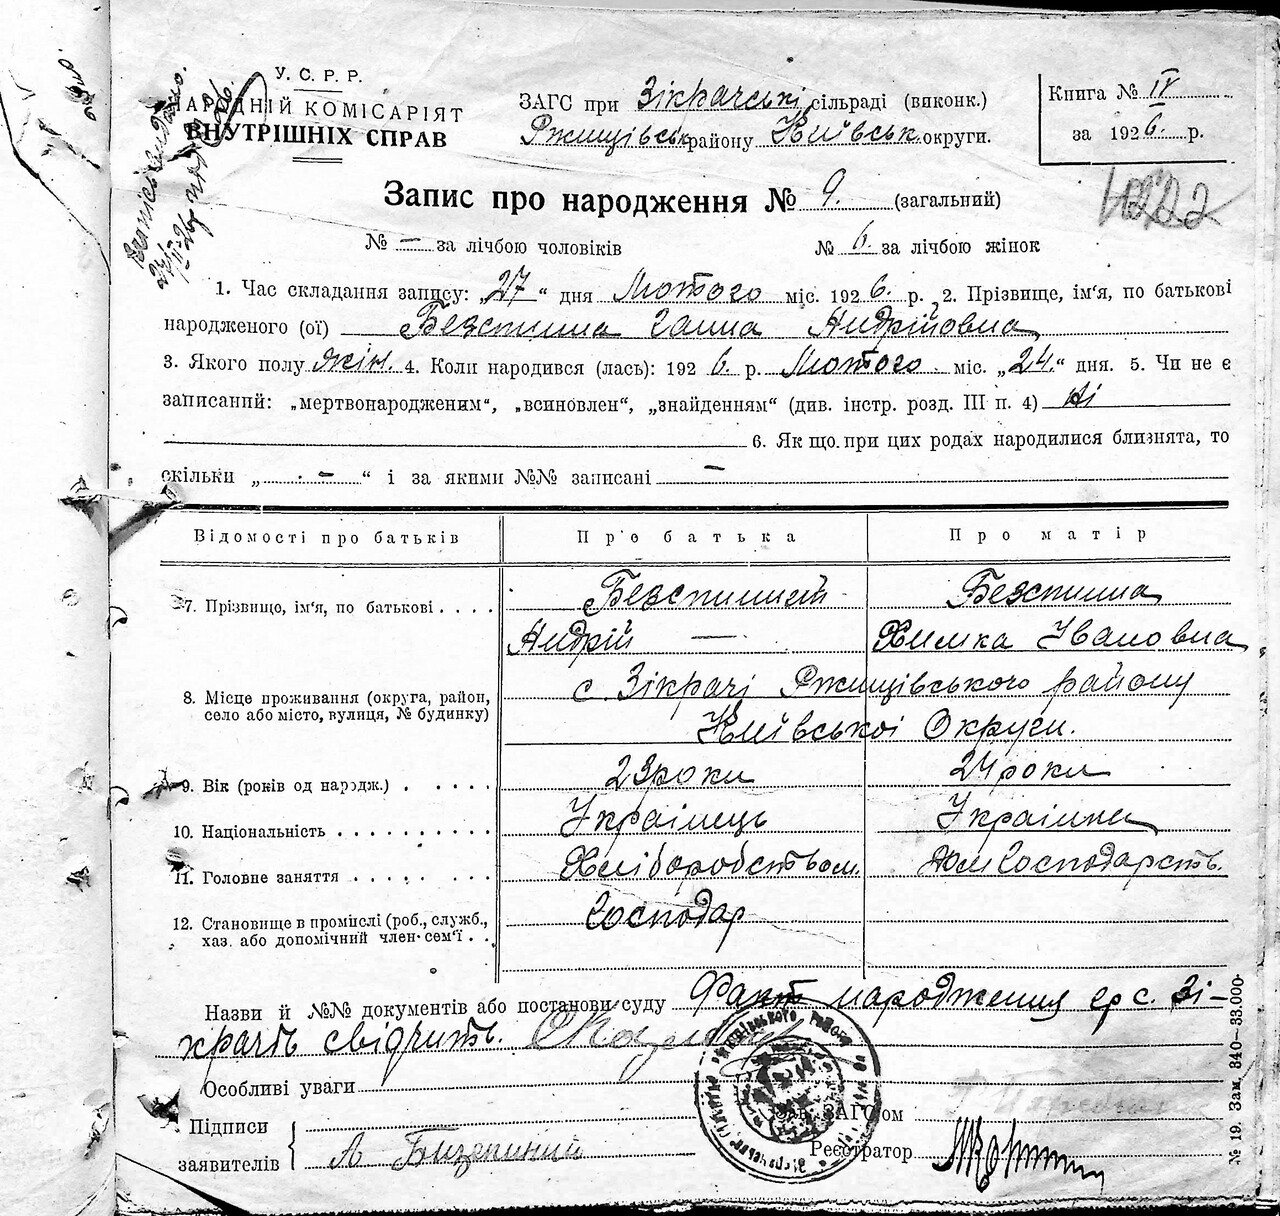 У. С. Р. Р.
НАРОДНІЙ КОМІСАРІЯТ
ВНУТРІШНІХ СПРАВ
ЗАГС при Зікрачські сільраді (виконк.)
Ржищівськ району Київськ округи.
Книга № IV
за 1926. р.
Запис про народження № 9. (загальний)
№ — за лічбою чоловіків № 6. за лічбою жінок
1. Час складання запису: „27" дня Лютого міс. 1926. р. 2. Прізвище, ім'я, по батькові
народженого (ої) Безспина Ганна Андрійовна
3. Якого полу жін. 4. Коли народився (лась): 1926. р. Лютого міс. „24." дня. 5. Чи не є
записаний: „мертвонародженим", „всиновлен", „знайденням" (див. інстр. розд. III п. 4) Ні
6. Як що при цих родах народилися близнята, то
скільки „ - " і за якими №№ записані —
Відомості про батьків Про батька Про матір
7. Прізвищо, ім'я, по батькові . . . . Безспиний Безспина
Андрій — Химка Івановна
8. Місце проживання (округа, район, село або місто, вулиця, № будинку) с. Зікрачі Ржищівського району
Київської Округи.
9. Вік (років од народж.) . . . . . 23 роки 24 роки
10. Національність . . . . . . . . . . Українець Українка
11. Головне заняття . . . . . . . . Хліборобством. Дом Господарств.
12. Становище в промислі (роб., служб., хаз. або допомічний член-сем'ї . . Господар
Назви й №№ документів або постанови суду Факт народження гр. с. Зі-
крачъ свідчить.
Особливі уваги
Підписи
заявителів А Безспиний
Зав. ЗАГС'ом
Реєстратор
№ 19. Зам. 340—33.000